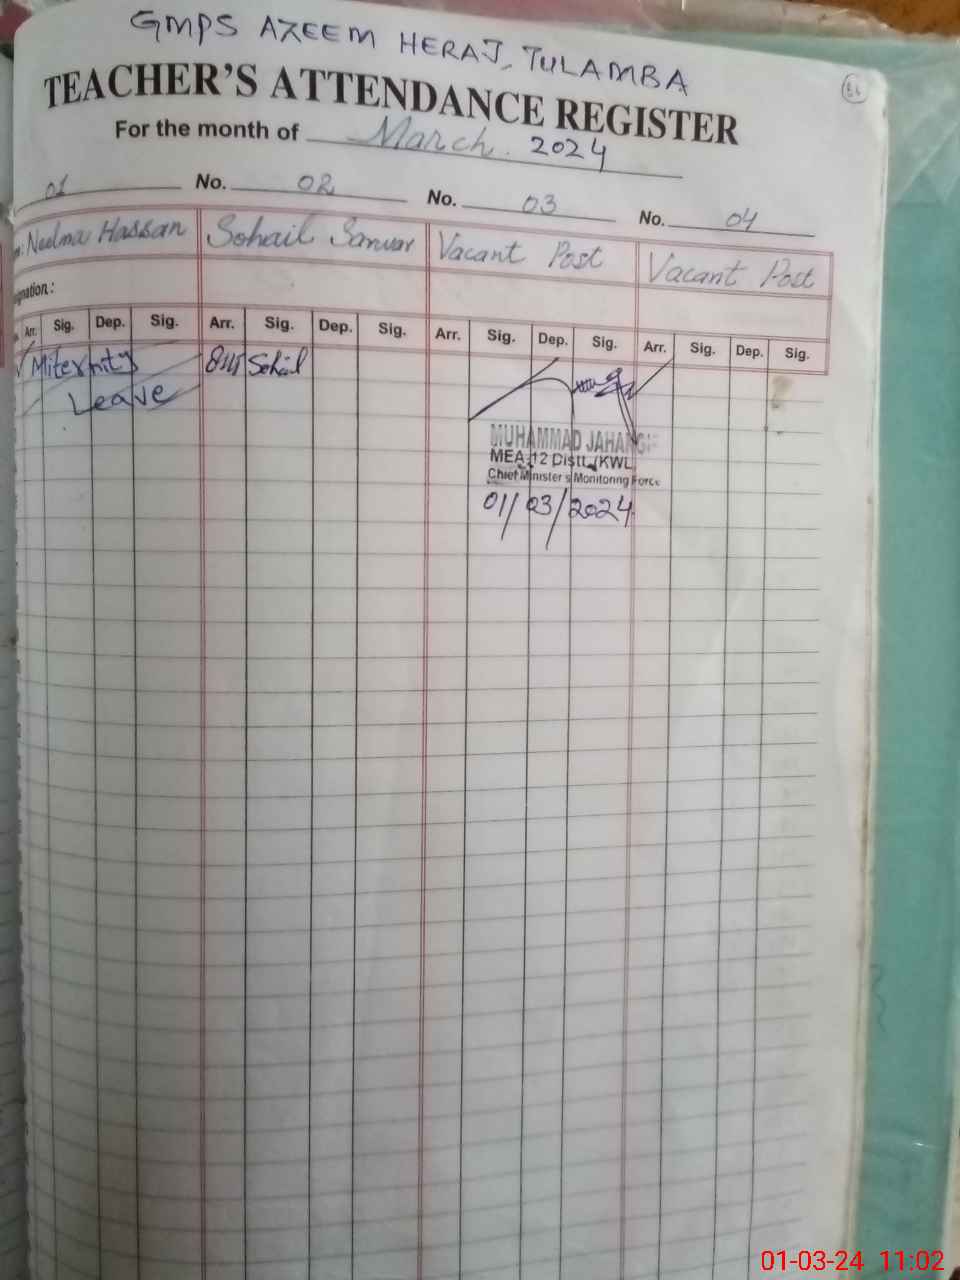 GMPS AZEEM HERAJ, TULAMBA
TEACHER'S ATTENDANCE REGISTER
For the month of March. 2024
01 No. 02 No. 03 No. 04
Neelma Hassan Sohail Sarwar Vacant Post Vacant Post
gnation :
Arr. Sig. Dep. Sig. Arr. Sig. Dep. Sig. Arr. Sig. Dep. Sig. Arr. Sig. Dep. Sig.
Miternity Sohail
Leave
MUHAMMAD JAHANGIR
MEA-12 Distt./KWL
Chief Minister's Monitoring Force
01/03/2024
01-03-24 11:02